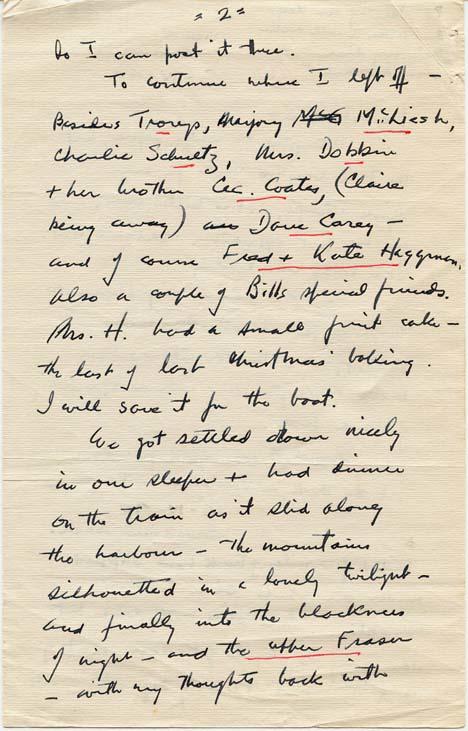 = 2 =
So I can post it there.
To continue where I left off —
Besides Troreys, Marjory McLeish,
Charlie Schultz, Mrs. Dobbin
+ her brother Cec. Coates, (Claire
being away) Dave Carey —
and of course Fred + Kate Haggman.
also a couple of Bill's special friends.
Mrs. H. had a small fruit cake —
the last of last Christmas' baking.
I will save it for the boat.
We got settled down nicely
in our sleeper + had dinner
on the train as it slid along
the harbour — The mountains
silhouetted in a lovely twilight —
and finally into the blackness
of night — and the upper Fraser
— with my thoughts back with